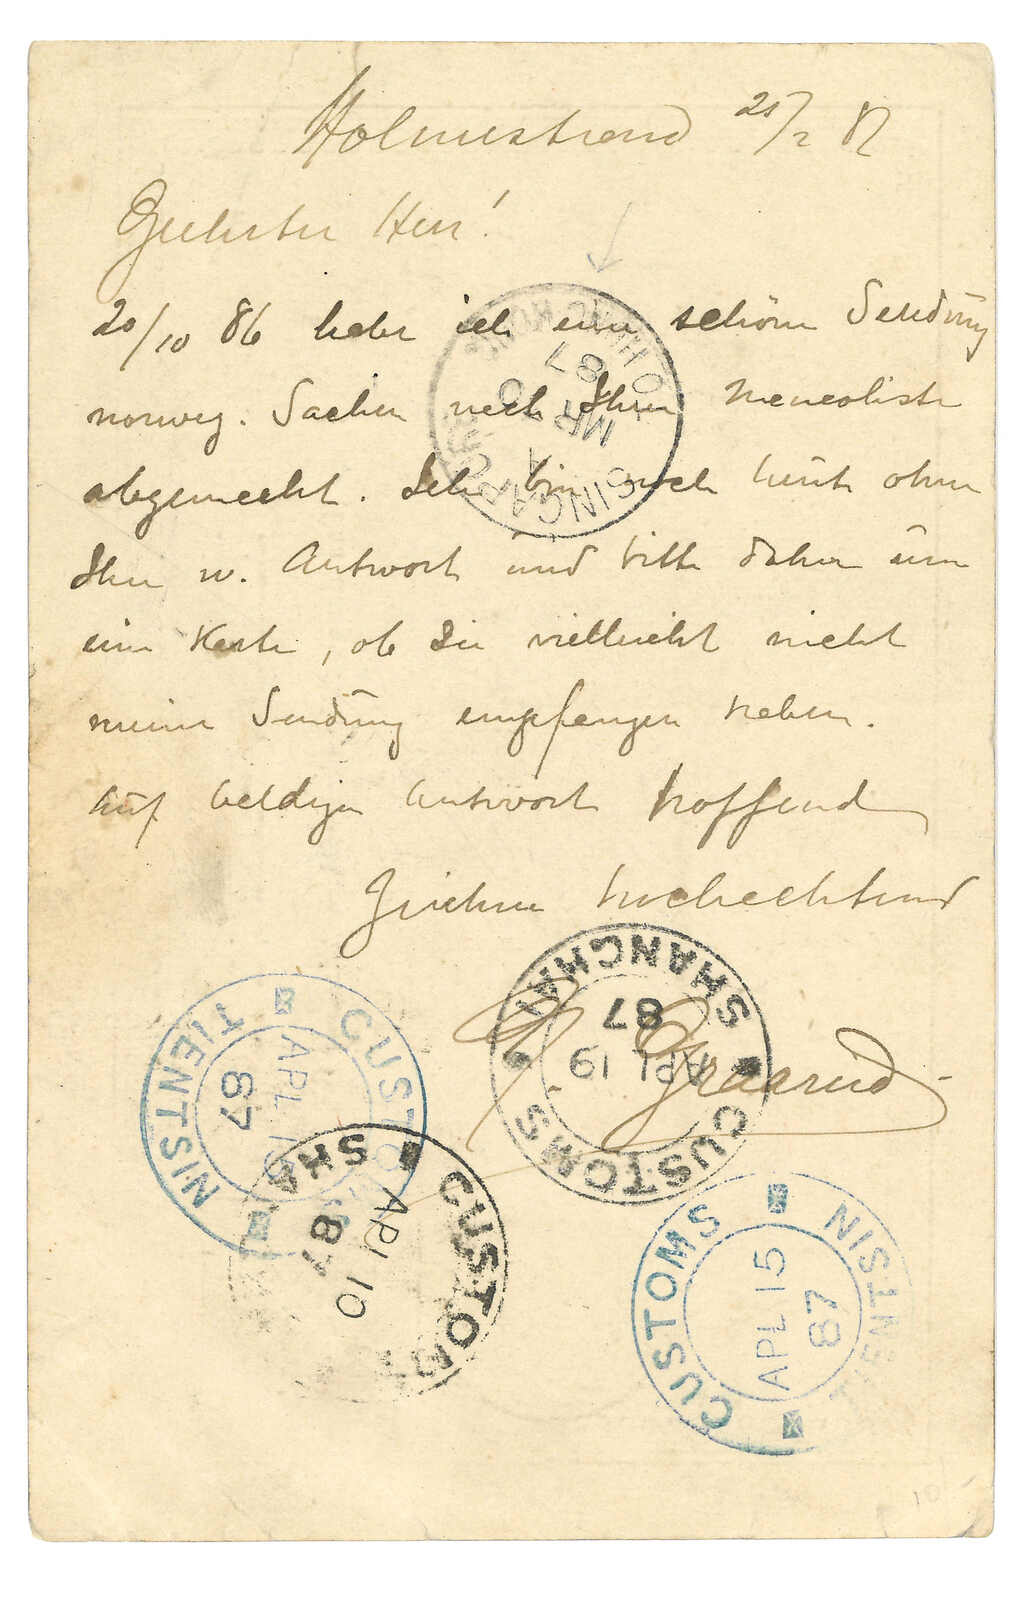 Holmestrand 25/2 87
Geehrter Herr!
20/10 86 habe ich eine schöne Sendung
norweg. Sachen nach Ihrer Mancoliste
abgemacht. Ich bin noch heute ohne
Ihre w. Antwort und bitte daher um
eine Karte, ob Sie vielleicht nicht
meine Sendung empfangen haben.
Auf baldige Antwort hoffend
Zeichne hochachtend
SINGAPORE
A
MR
87
SHANGHAI
CUSTOMS
APL 19
87
CUSTOMS
TIENTSIN
APL
87
CUSTOM
SHA
APL 10
87
CUSTOMS
TIENTSIN
APL 15
87
10